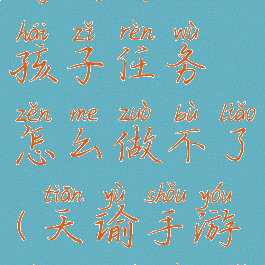 hái zǐ rèn wù
孩子任务
zěn me zuò bù liǎo
怎么做不了
tiān yù shǒu yóu
(天谕手游